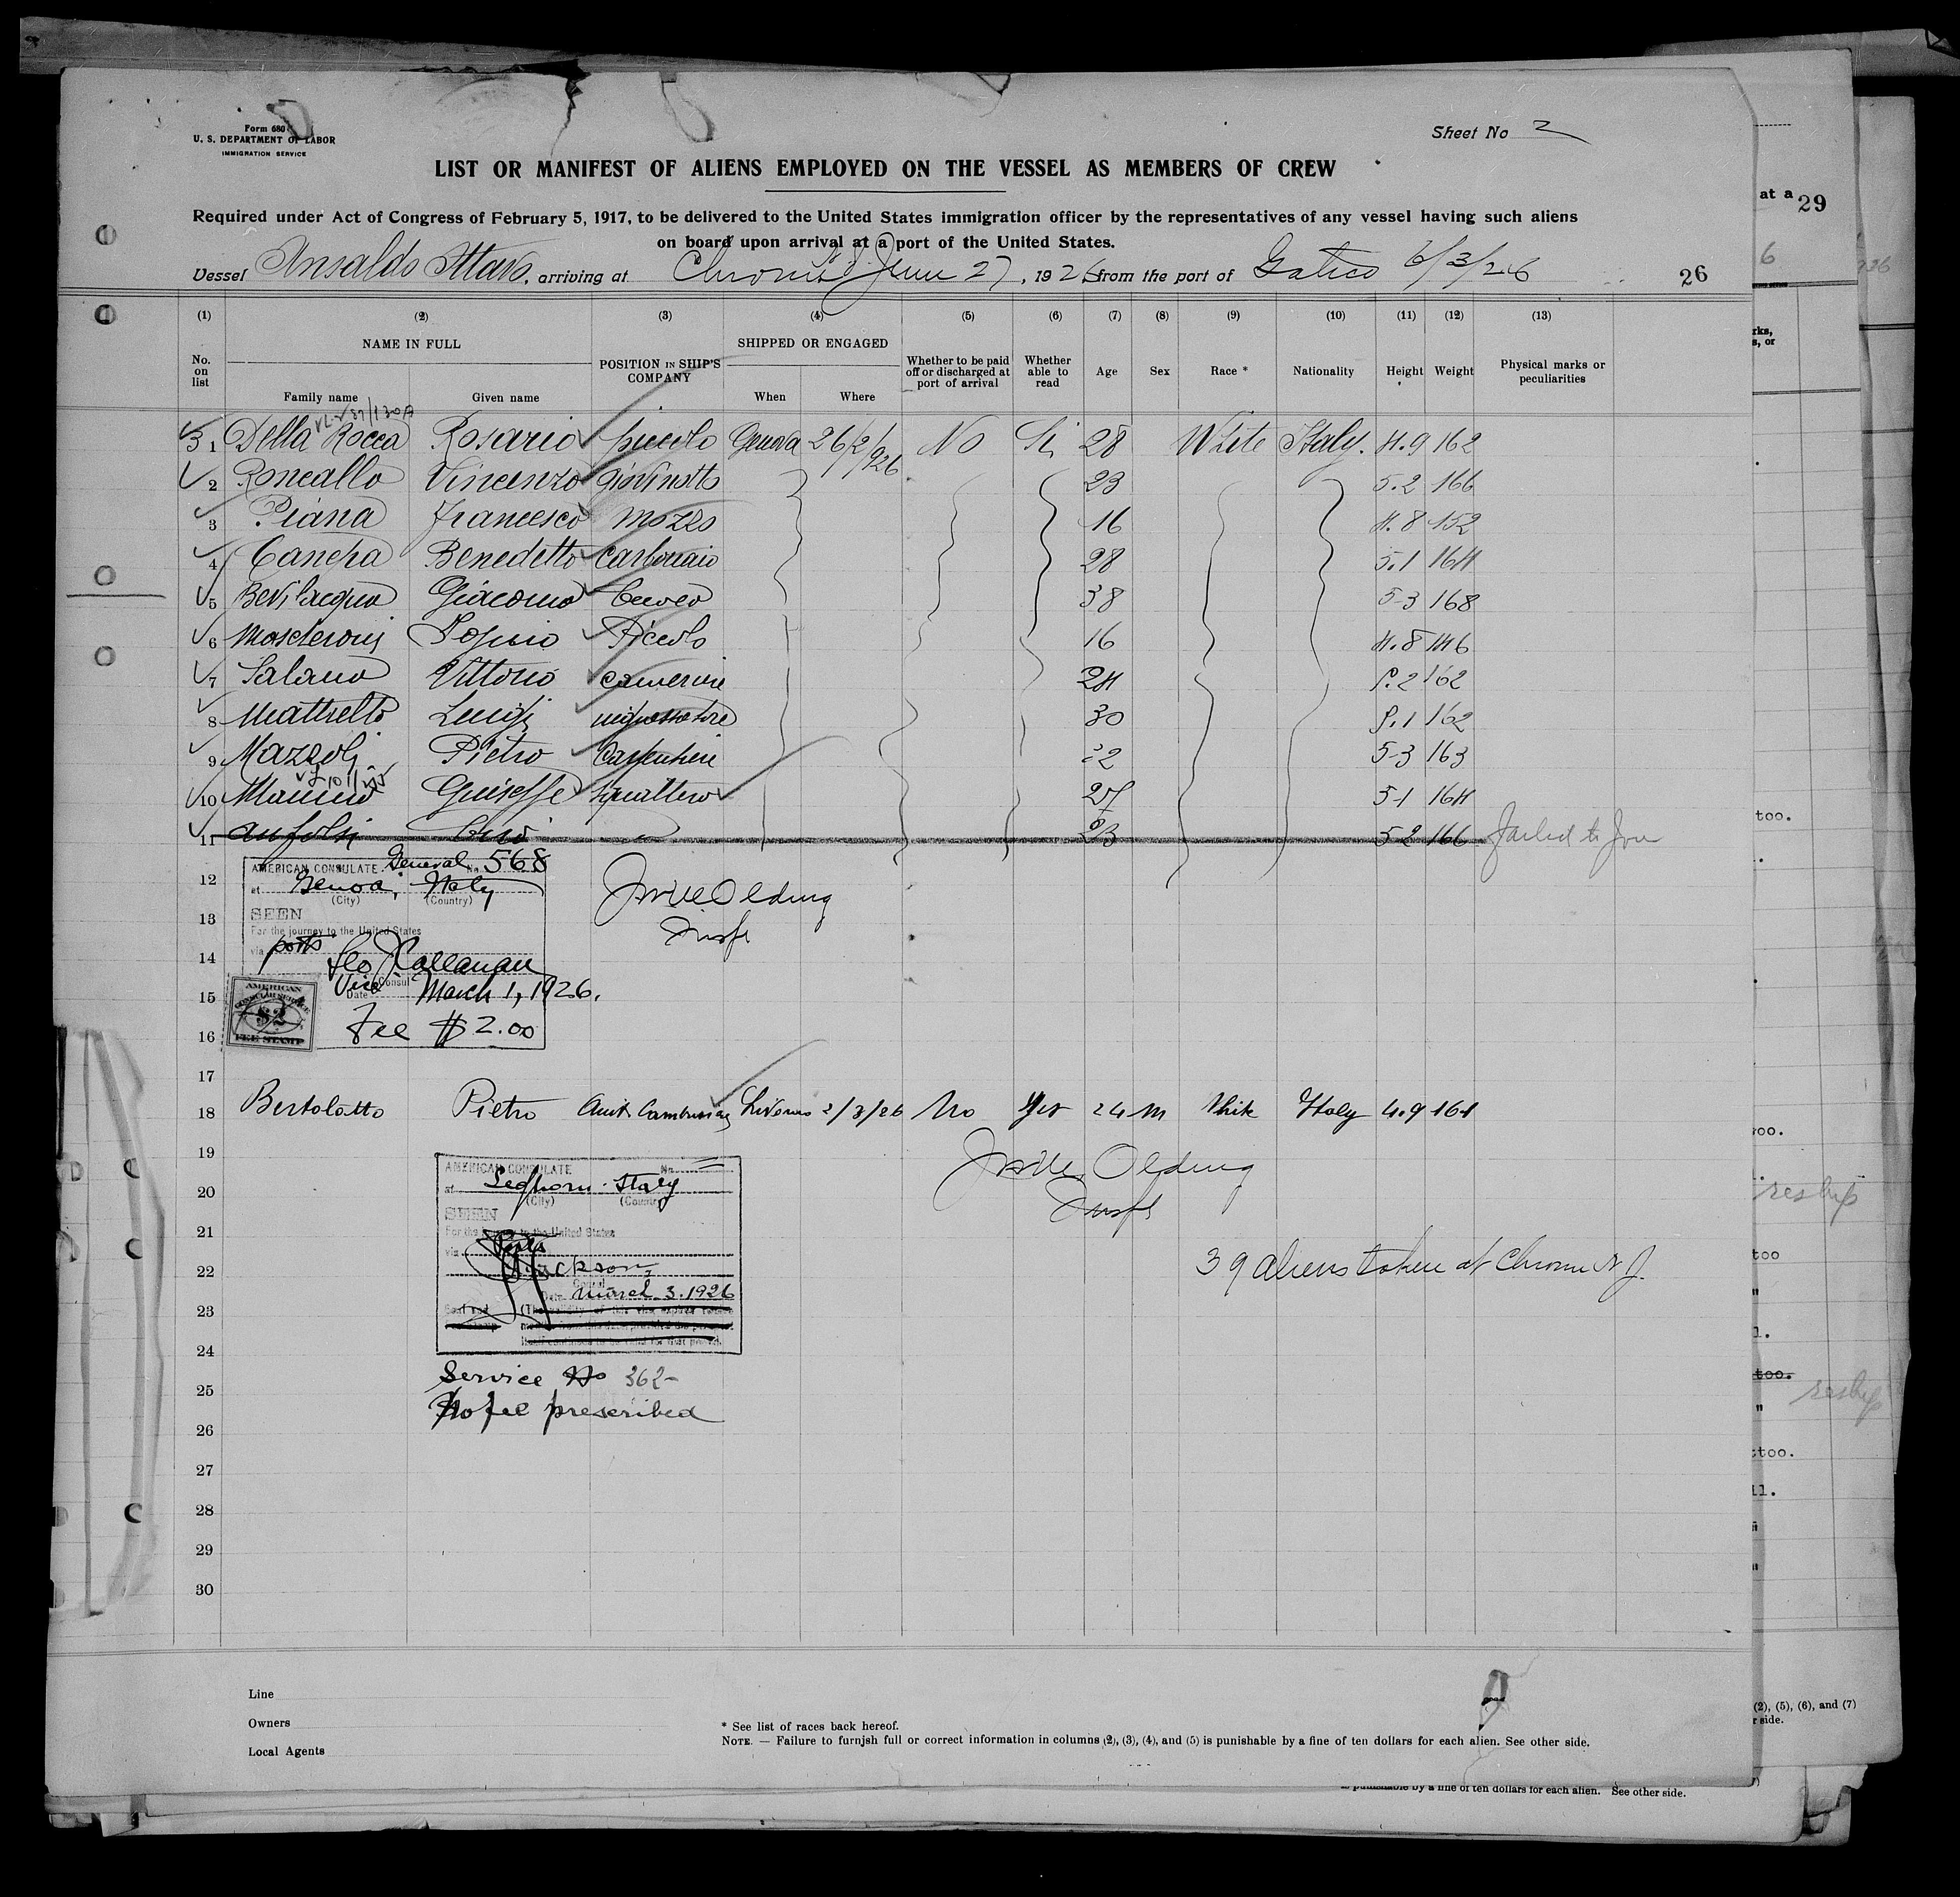 Form 680
U. S. DEPARTMENT OF LABOR
IMMIGRATION SERVICE
Sheet No 2
LIST OR MANIFEST OF ALIENS EMPLOYED ON THE VESSEL AS MEMBERS OF CREW
Required under Act of Congress of February 5, 1917, to be delivered to the United States immigration officer by the representatives of any vessel having such aliens
on board upon arrival at a port of the United States.
Vessel Ansaldo, arriving at Chrome N.J. June 27, 1926 from the port of Gatico 6/3/26
26
(1) (2) (3) (4) (5) (6) (7) (8) (9) (10) (11) (12) (13)
No. on list
NAME IN FULL
Family name
Given name
POSITION IN SHIP'S COMPANY
SHIPPED OR ENGAGED
When
Where
Whether to be paid off or discharged at port of arrival
Whether able to read
Age
Sex
Race *
Nationality
Height
Weight
Physical marks or peculiarities
1 Della Rocca Rosario piccolo Genova 26/2/926 No Si 28 White Italy. 4.9 162
2 Roncallo Vincenzo giovinotto 23 5.2 166
3 Piana Francesco mozzo 16 4.8 152
4 Canepa Benedetto carbonaio 28 5.1 164
5 Bevilacqua Giacomo 38 5-3 168
6 Piccolo 16 4.8 146
7 Vittorio cameriere 24 5.2 162
8 Luigi 30 5.1 162
9 Mazzoli Pietro 22 5-3 163
10 Giuseppe sguattero 5-1 164
11 23 5-2 166 failed to join
AMERICAN CONSULATE General No. 568
at Genoa, Italy
(City) (Country)
SEEN
For the journey to the United States
via ports
Leo J Callanan
Vice Consul
Date March 1, 1926.
Fee $2.00
AMERICAN
CONSULAR SERVICE
$2
FEE STAMP
Olding
Inspr
12
13
14
15
16
17
18 Bertolotto Pietro Livorno 2/3/26 No Yes 24 M White Italy 4.9 161
19
20
21
22
23
24
25
26
27
28
29
30
AMERICAN CONSULATE No.
at Leghorn Italy
(City) (Country)
SEEN
For the journey to the United States
via Ports
Jackson
Consul
Date March 3. 1926
Service No 362-
No fee prescribed
Olding
Inspr
39 aliens taken at Chrome N J.
Line
Owners
Local Agents
* See list of races back hereof.
NOTE. — Failure to furnish full or correct information in columns (2), (3), (4), and (5) is punishable by a fine of ten dollars for each alien. See other side.
at a 29
6
too.
reship
too
too.
reship
(2), (5), (6), and (7)
side.
is punishable by a fine of ten dollars for each alien. See other side.